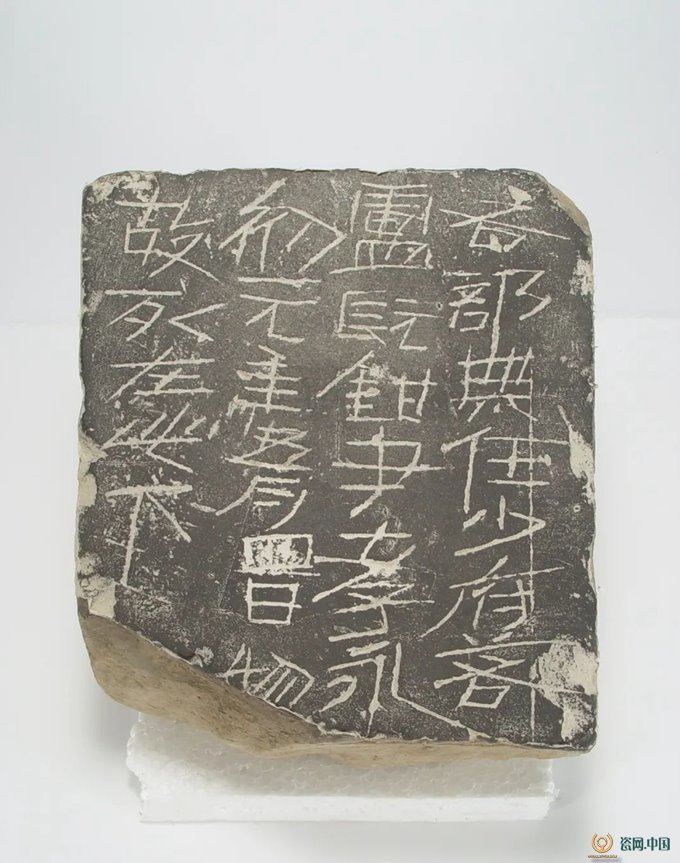 右部無任少府若
盧髡鉗尹孝永
初元年五月四日物
故死在此下
瓷网.中国